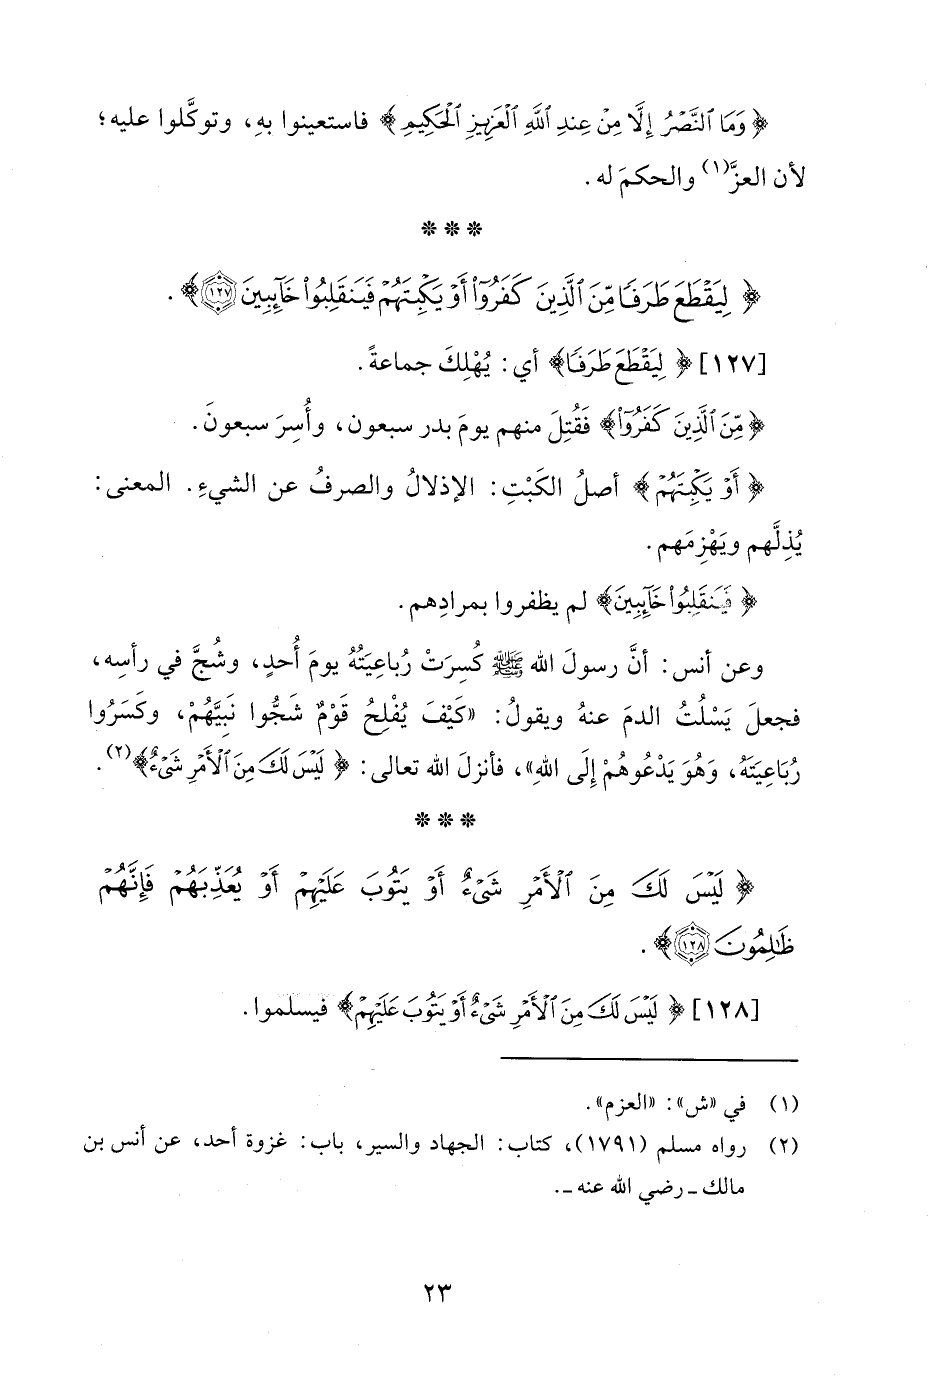 ﴿وَمَا ٱلنَّصْرُ إِلَّا مِنْ عِندِ ٱللَّهِ ٱلْعَزِيزِ ٱلْحَكِيمِ﴾ فاستعينوا بهِ، وتوكَّلوا عليه؛
لأن العزَّ(١) والحكمَ له.
* * *
﴿لِيَقْطَعَ طَرَفًا مِّنَ ٱلَّذِينَ كَفَرُوٓا۟ أَوْ يَكْبِتَهُمْ فَيَنقَلِبُوا۟ خَآئِبِينَ ۝١٢٧﴾.
[١٢٧] ﴿لِيَقْطَعَ طَرَفًا﴾ أي: يُهْلِكَ جماعةً.
﴿مِّنَ ٱلَّذِينَ كَفَرُوٓا۟﴾ فَقُتِلَ منهم يومَ بدر سبعون، وأُسِرَ سبعونَ.
﴿أَوْ يَكْبِتَهُمْ﴾ أصلُ الكَبْتِ: الإذلالُ والصرفُ عن الشيءِ. المعنى:
يُذِلَّهم ويَهْزِمَهم.
﴿فَيَنقَلِبُوا۟ خَآئِبِينَ﴾ لم يظفروا بمرادِهم.
وعن أنس: أنَّ رسولَ الله ﷺ كُسِرَتْ رُباعِيَتُهُ يومَ أُحدٍ، وشُجَّ في رأسِه،
فجعلَ يَسْلُتُ الدمَ عنهُ ويقولُ: «كَيْفَ يُفْلِحُ قَوْمٌ شَجُّوا نَبِيَّهُمْ، وكَسَرُوا
رُبَاعِيَتَهُ، وَهُوَ يَدْعُوهُمْ إِلَى اللهِ»، فأنزلَ الله تعالى: ﴿لَيْسَ لَكَ مِنَ ٱلْأَمْرِ شَىْءٌ﴾(٢).
* * *
﴿لَيْسَ لَكَ مِنَ ٱلْأَمْرِ شَىْءٌ أَوْ يَتُوبَ عَلَيْهِمْ أَوْ يُعَذِّبَهُمْ فَإِنَّهُمْ
ظَٰلِمُونَ ۝١٢٨﴾.
[١٢٨] ﴿لَيْسَ لَكَ مِنَ ٱلْأَمْرِ شَىْءٌ أَوْ يَتُوبَ عَلَيْهِمْ﴾ فيسلموا.
(١) في «ش»: «العزم».
(٢) رواه مسلم (١٧٩١)، كتاب: الجهاد والسير، باب: غزوة أحد، عن أنس بن
مالك ـ رضي الله عنه ـ.
٢٣